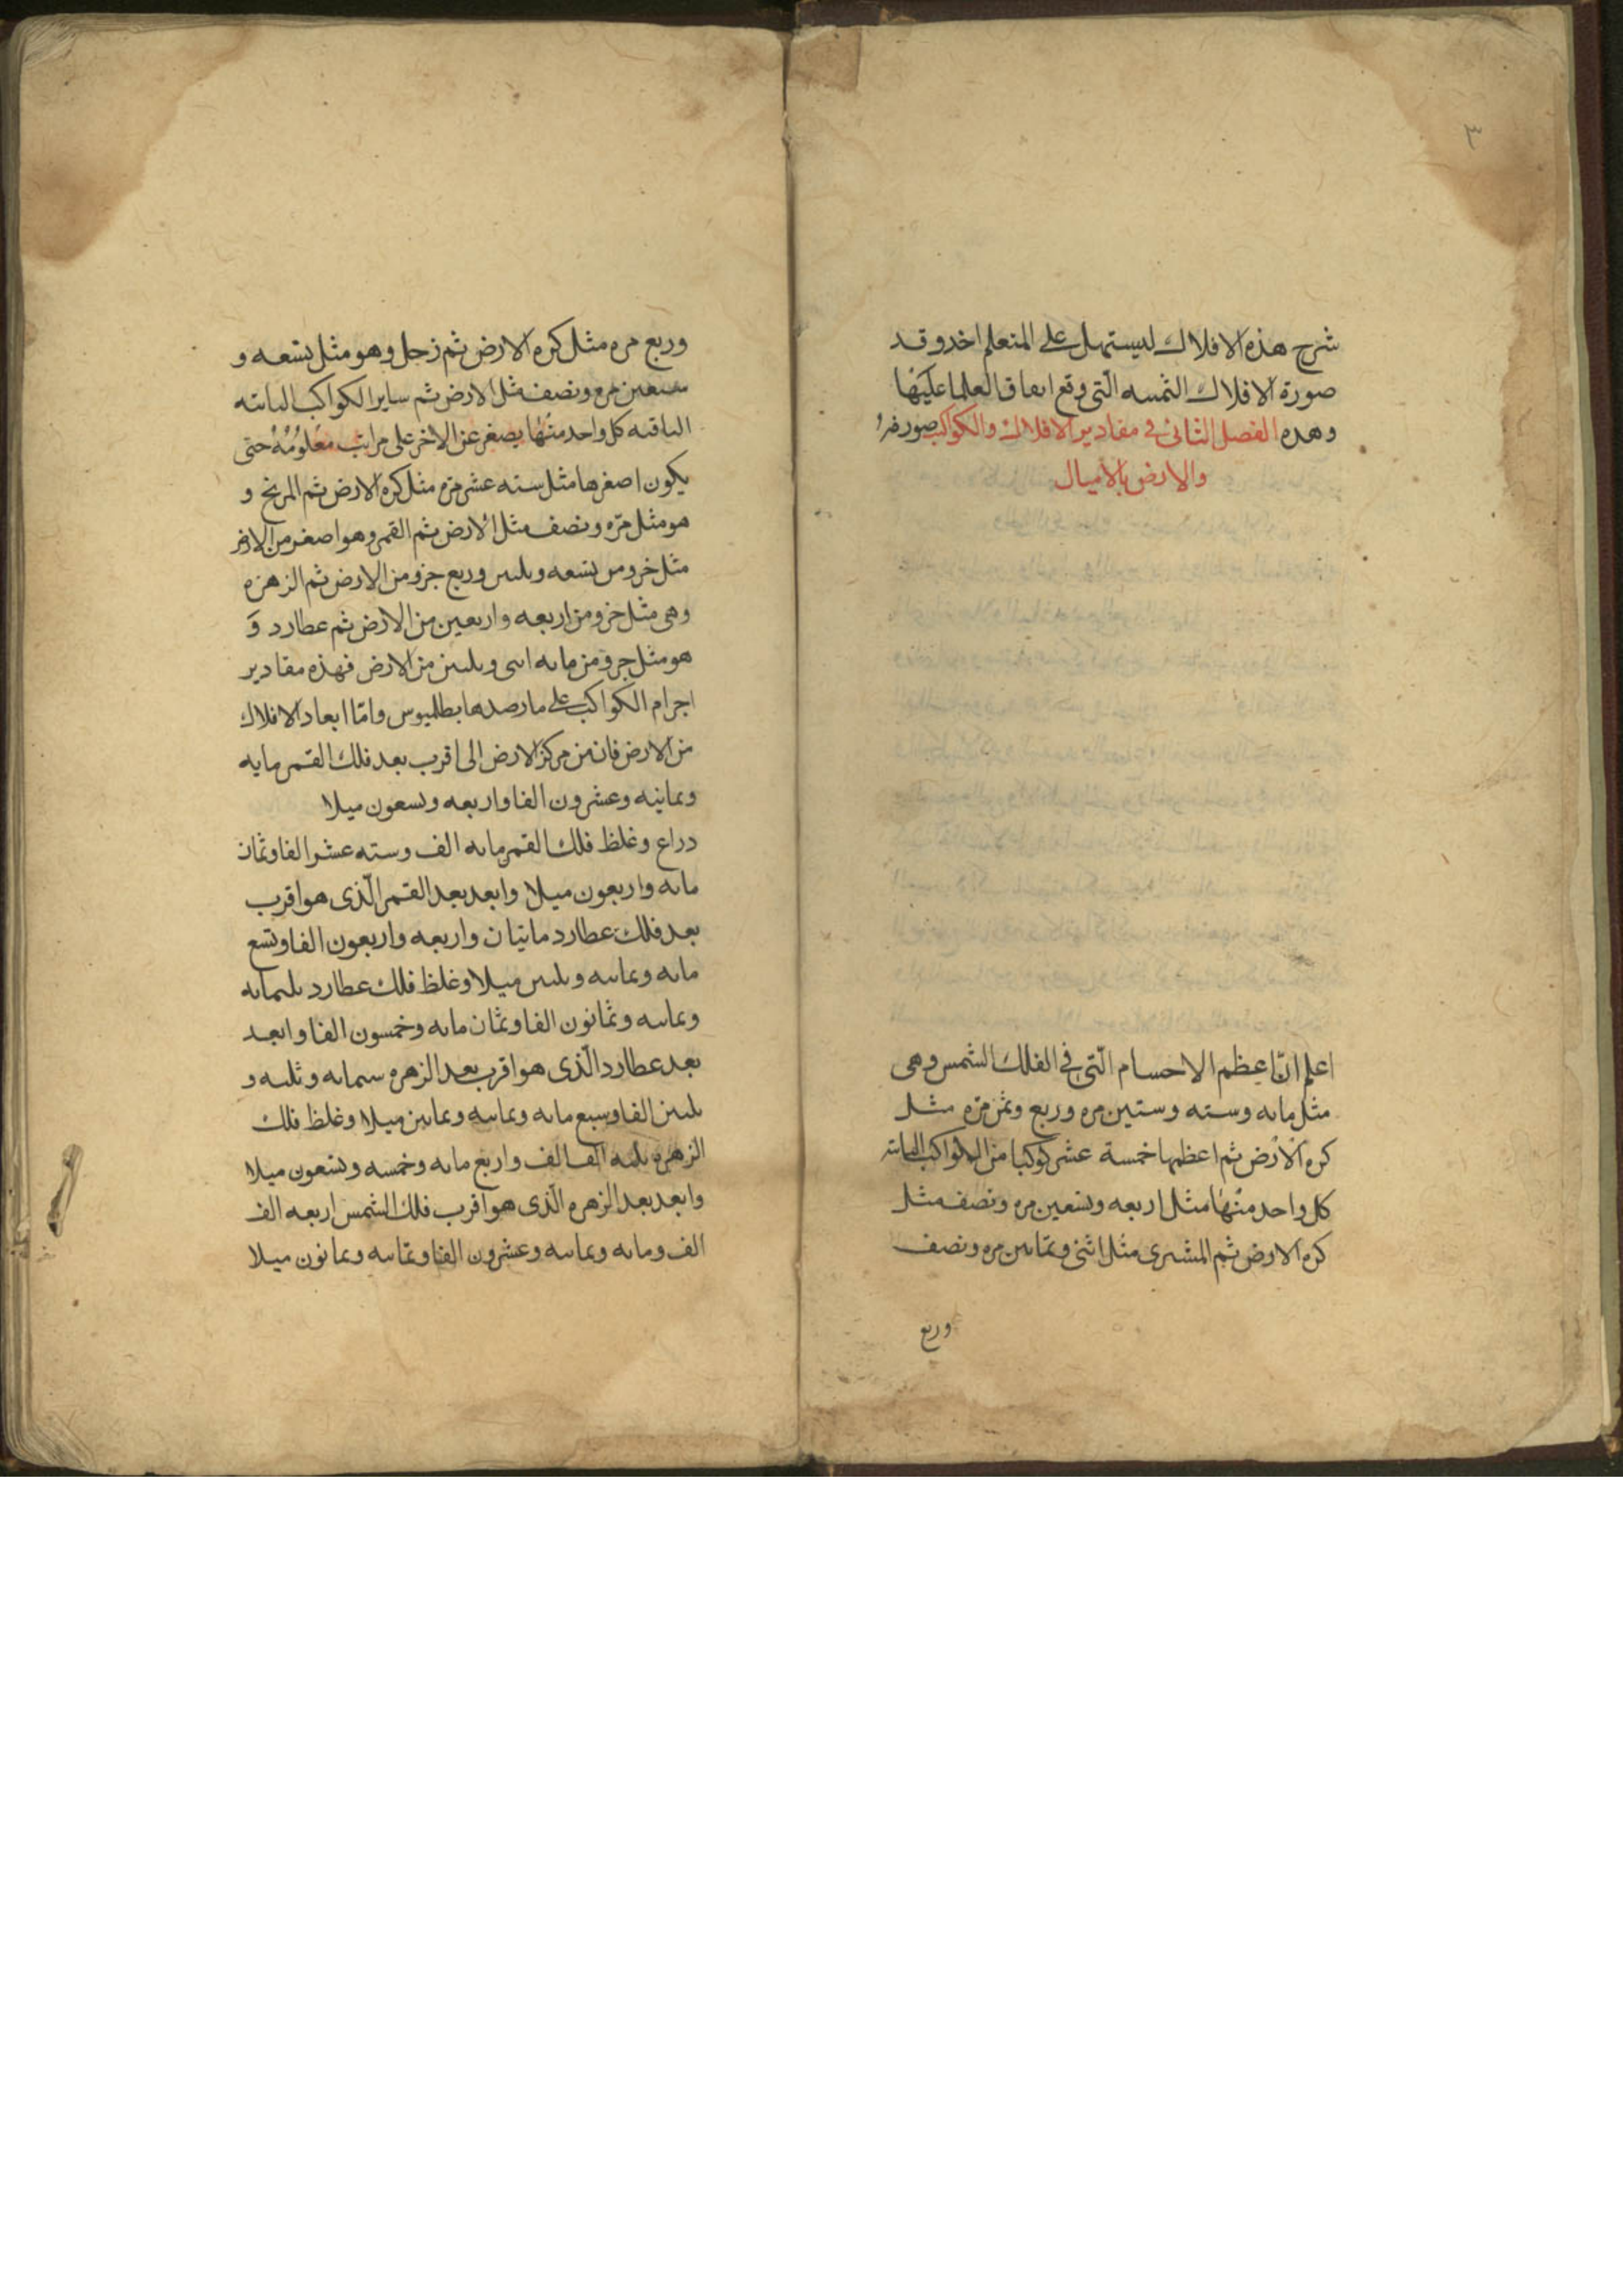 ٣
شرح هذه الافلاك ليستهل على المتعلم اخد وقد
صورة الافلاك الثمسه الّتى وقع اىفاق العلما عليها
وهده الفصل الثانى فى مقادير الافلاك والكواكب
والارض بالاميال
اعلم انّ اعظم الاحسام الّتى فى الفلك الشمس وهى
مثل مايه وسته وستين مره وربع وثمن مرّه مثل
كره الارض ثم اعظمها خمسة عشر كوكبا من الكواكب الىابىه
كل واحد منها مثل اربعه وتسعين مره ونصف مثل
كره الارض ثم المشترى مثل اثنى وثمانين مره ونصف
وربع
وربع مره مثل كره الارض ثم زحل وهو مثل تسعه و
سبعين مره ونصف مثل الارض ثم ساير الكواكب الىابته
الباقيه كل واحد منها يصغر عن الاخر على مراتب معلومه حتى
يكون اصغرها مثل سته عشر مرّه مثل كره الارض ثم المريخ و
هو مثل مرّه ونصف مثل الارض ثم القمر وهو اصغر من الارض
مثل جزو من تسعه وىلىىن وربع جزو من الارض ثم الزهره
وهى مثل جزو من اربعه واربعين من الارض ثم عطارد و
هو مثل جزو من مايه اىىى وىلىىن من الارض فهذه مقادير
اجرام الكواكب على ما رصدها بطلميوس وامّا ابعاد الافلاك
من الارض فان من مركز الارض الى اقرب بعد فلك القمر مايه
وثمانيه وعشرون الفا واربعه وتسعون ميلا
دراع وغلظ فلك القمر مايه الف وسته عشر الفا وثمان
مايه واربعون ميلا وابعد بعد القمر الّذى هو اقرب
بعد فلك عطارد مايتان واربعه واربعون الفا وتسع
مايه وثمانيه وىلىىن ميلا وغلظ فلك عطارد ىلىمايه
وثمانيه وثمانون الفا وثمان مايه وخمسون الفا وابعد
بعد عطارد الّذى هو اقرب بعد الزهره ستمايه وثلىه و
ىلىىن الفا وسبع مايه وثمانيه وثمانين ميلا وغلظ فلك
الزهره ىلىه الف الف واربع مايه وخمسه وتسعون ميلا
وابعد بعد الزهره الّذى هو اقرب فلك الشمس اربعه الف
الف ومايه وثمانيه وعشرون الفا وثمانيه وثمانون ميلا